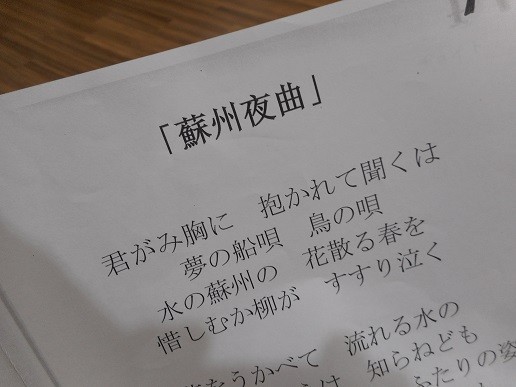 「蘇州夜曲」
君がみ胸に 抱かれて聞くは
夢の船唄 鳥の唄
水の蘇州の 花散る春を
惜しむか柳が すすり泣く
をうかべて 流れる水の
は 知らねども
ふたりの姿